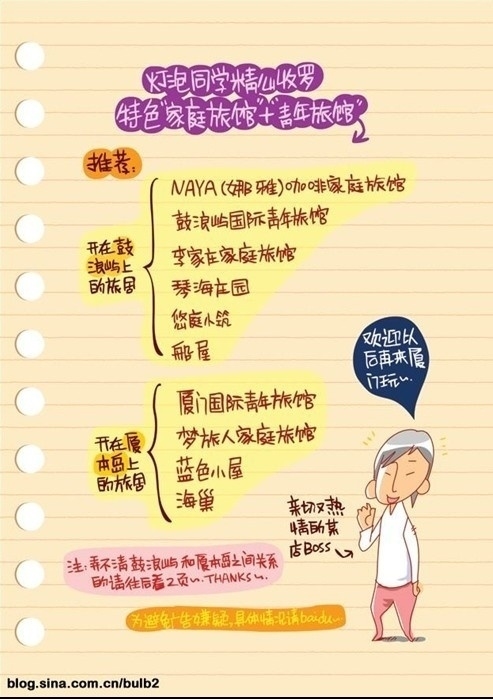 灯泡同学精心收罗
特色"家庭旅馆"+"青年旅馆"
推荐:
开在鼓
浪屿上
的旅居
NAYA(娜雅)咖啡家庭旅馆
鼓浪屿国际青年旅馆
李家庄家庭旅馆
琴海庄园
悠庭小筑
船屋
开在厦
本岛上
的旅居
厦门国际青年旅馆
梦旅人家庭旅馆
蓝色小屋
海巢
欢迎以
后再来厦
门玩~
亲切又热
情的某
店BOSS
注:弄不清鼓浪屿和厦本岛之间关系
的请往后看2页~.THANKS~.
为避免广告嫌疑,具体情况请baidu...
blog.sina.com.cn/bulb2